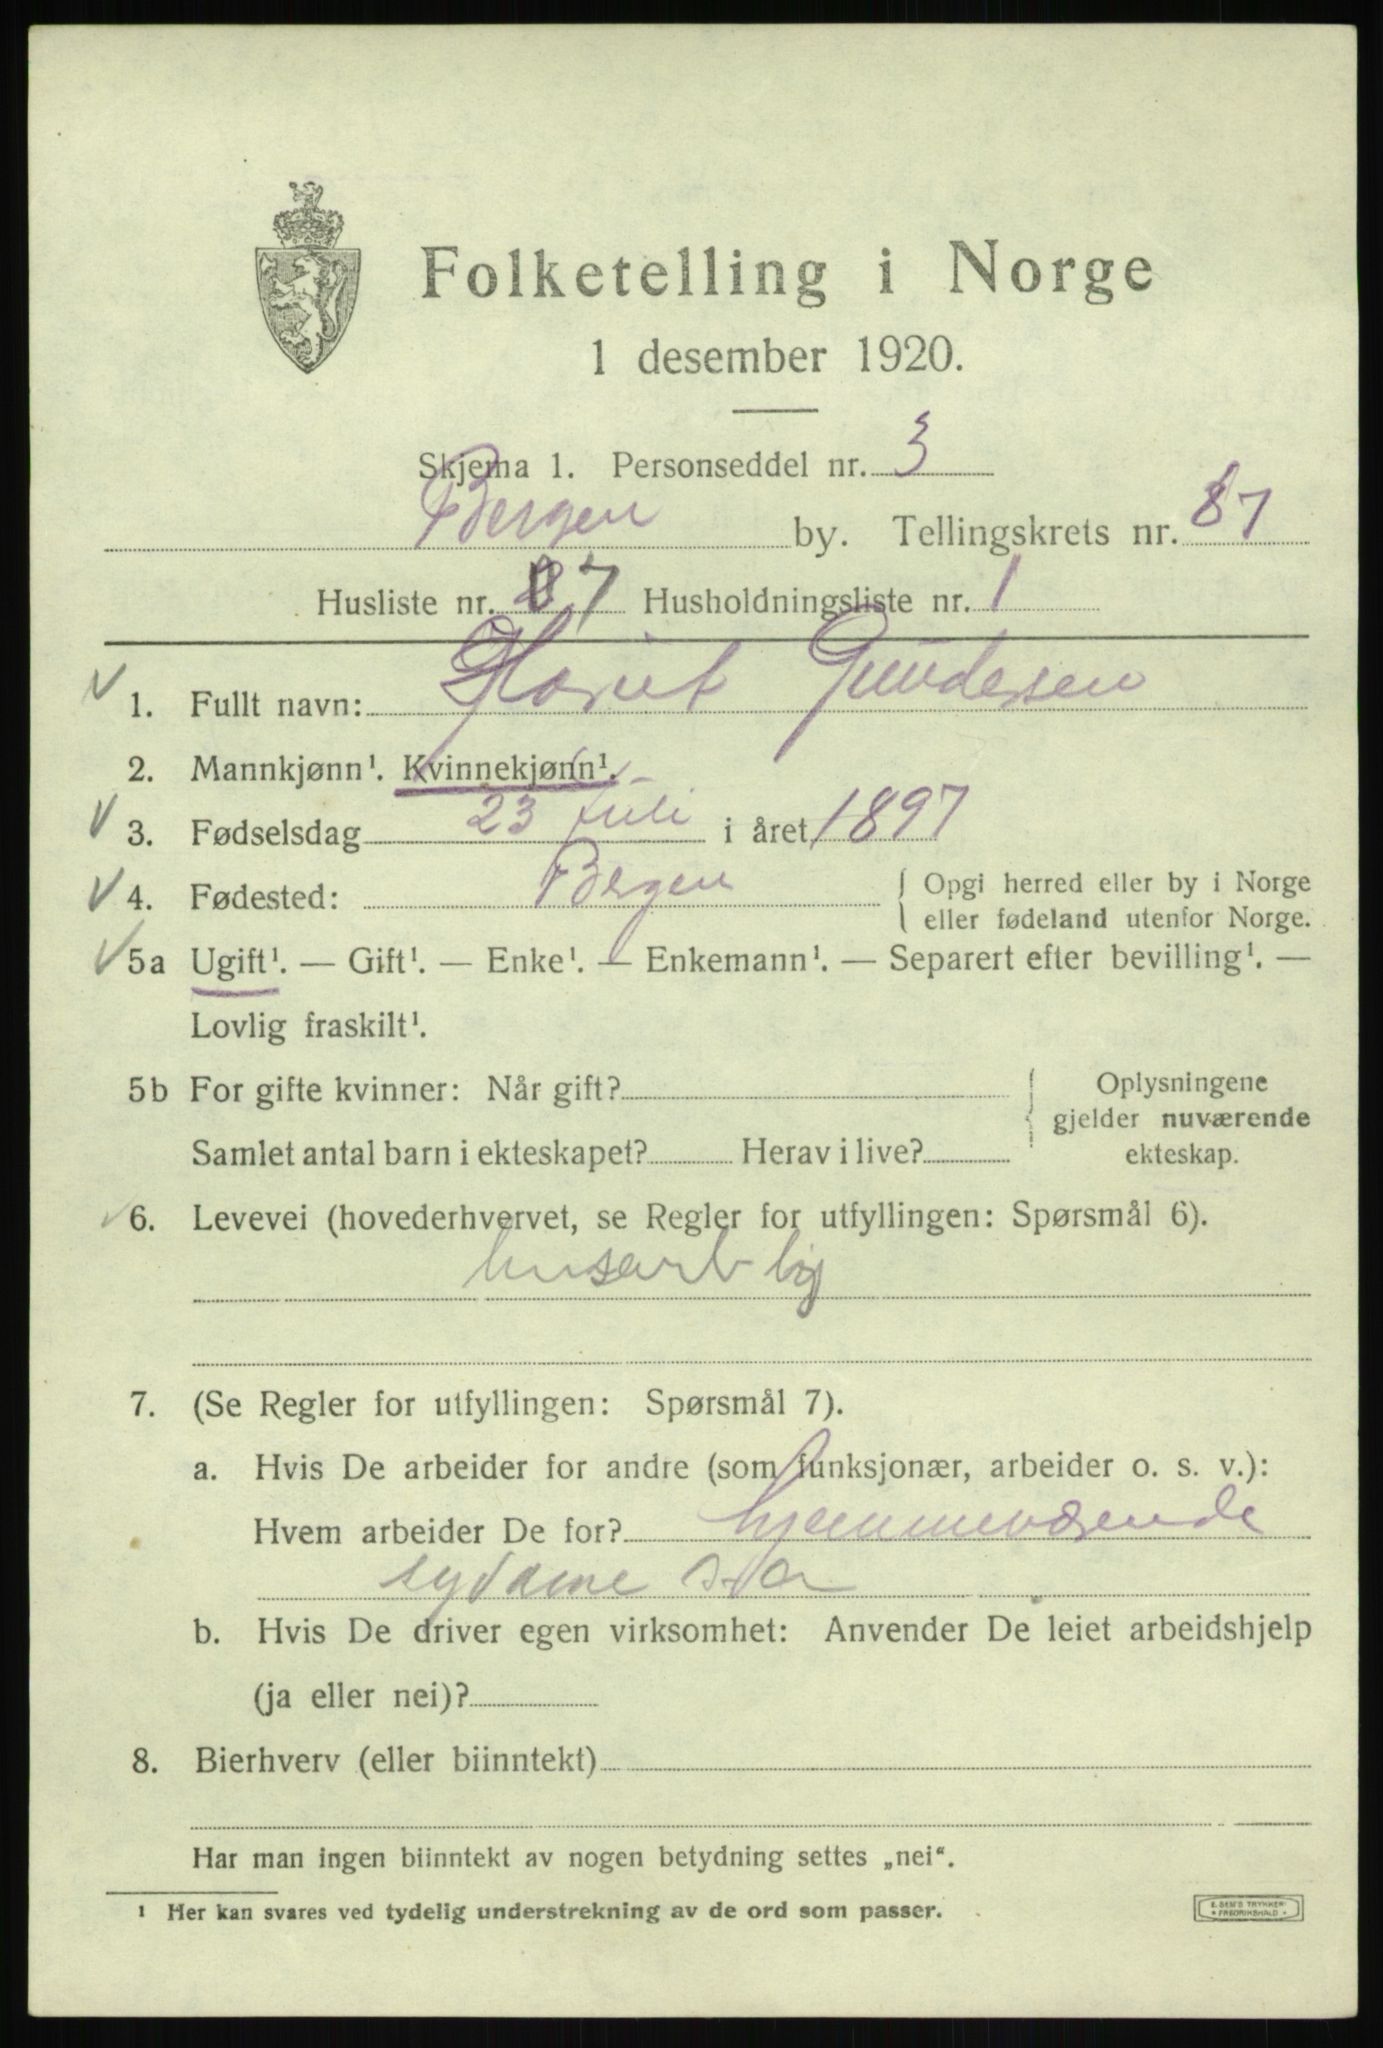 Folketelling i Norge
1 desember 1920.
Skjema 1. Personseddel nr. 3
Bergen by. Tellingskrets nr. 87
Husliste nr. 7 Husholdningsliste nr. 1
1. Fullt navn: Gundersen
2. Mannkjønn¹. Kvinnekjønn¹.
3. Fødselsdag 23 juli i året 1897
4. Fødested: Bergen { Opgi herred eller by i Norge
eller fødeland utenfor Norge.
5a Ugift¹. — Gift¹. — Enke¹. — Enkemann¹. — Separert efter bevilling¹. —
Lovlig fraskilt¹.
5b For gifte kvinner: Når gift? { Oplysningene
gjelder nuværende
Samlet antal barn i ekteskapet? Herav i live? ekteskap.
6. Levevei (hovederhvervet, se Regler for utfyllingen: Spørsmål 6).
husarb
7. (Se Regler for utfyllingen: Spørsmål 7).
a. Hvis De arbeider for andre (som funksjonær, arbeider o. s. v.):
Hvem arbeider De for? hjemmeværende
sydame
b. Hvis De driver egen virksomhet: Anvender De leiet arbeidshjelp
(ja eller nei)?
8. Bierhverv (eller biinntekt)
Har man ingen biinntekt av nogen betydning settes „nei“.
¹ Her kan svares ved tydelig understrekning av de ord som passer.
E. SEM'S TRYKKERI
• FREDRIKSHALD •